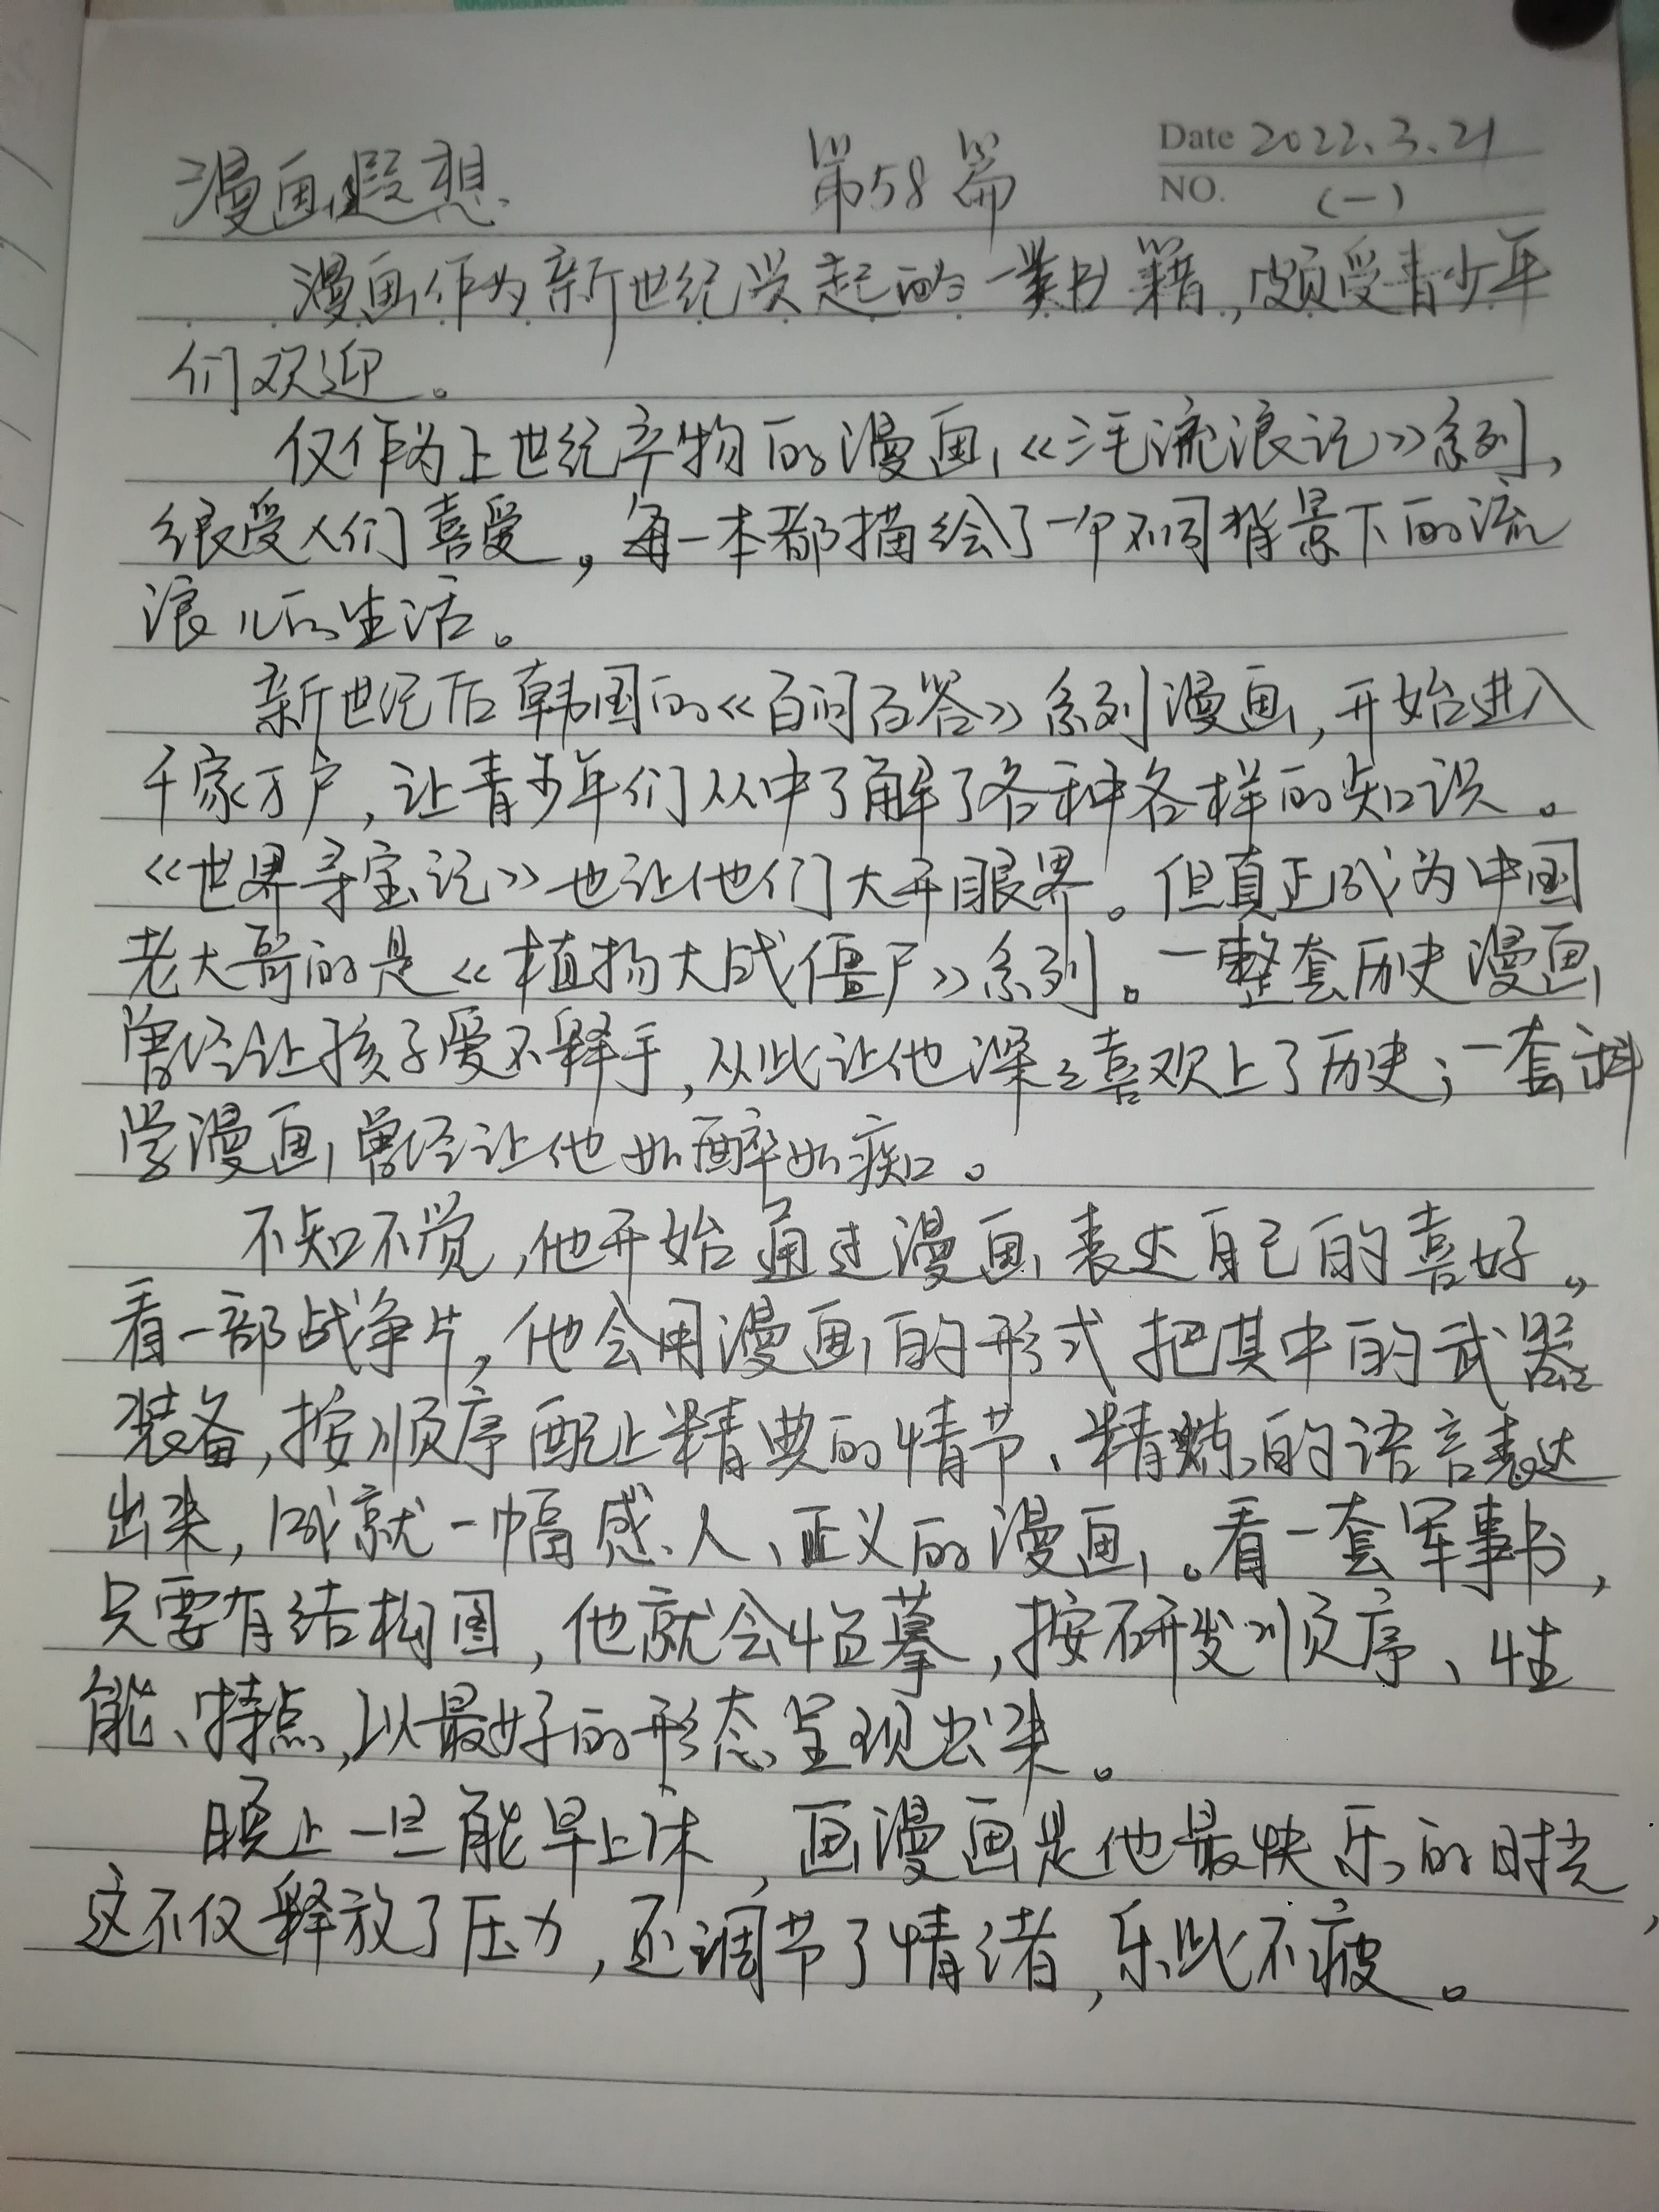 漫画遐想 第58篇 Date 2022.3.21
NO. (一)
漫画作为新世纪兴起的一类书籍,颇受青少年
们欢迎。
仅作为上世纪产物的漫画《三毛流浪记》系列,
很受人们喜爱,每一本都描绘了一个不同背景下的流
浪儿的生活。
新世纪后韩国的《百问百答》系列漫画,开始进入
千家万户,让青少年们从中了解了各种各样的知识。
《世界寻宝记》也让他们大开眼界。但真正成为中国
老大哥的是《植物大战僵尸》系列。一整套历史漫画
曾经让孩子爱不释手,从此让他深深喜欢上了历史;一套科
学漫画曾经让他如醉如痴。
不知不觉,他开始通过漫画表达自己的喜好。
看一部战争片,他会用漫画的形式把其中的武器
装备,按顺序配上精典的情节、精炼的语言表达
出来,成就一幅感人、正义的漫画。看一套军事书,
只要有结构图,他就会临摹,按研发顺序、性
能、特点,以最好的形态呈现出来。
晚上一旦能早上床,画漫画是他最快乐的时光,
这不仅释放了压力,还调节了情绪,乐此不疲。